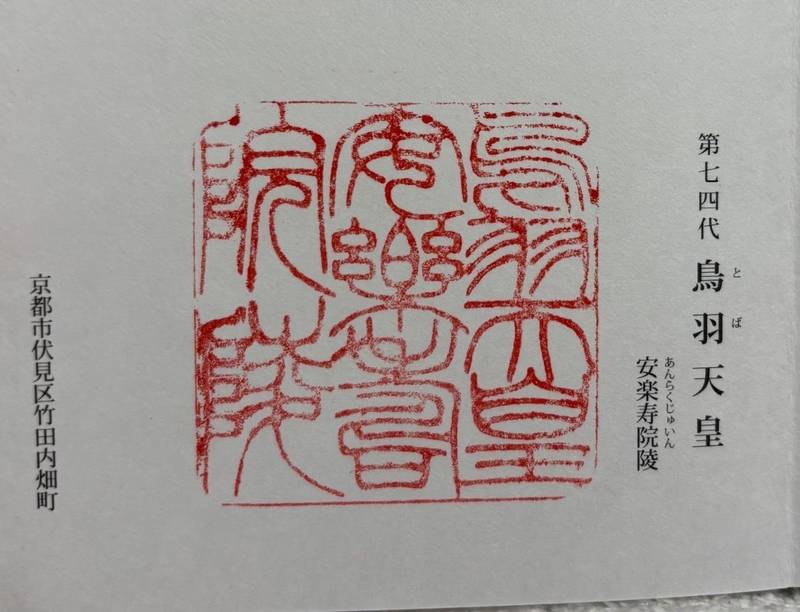 第七四代 鳥羽天皇
とば
安楽寿院陵
あんらくじゅいん
鳥羽天皇
安樂壽
院陵
京都市伏見区竹田内畑町